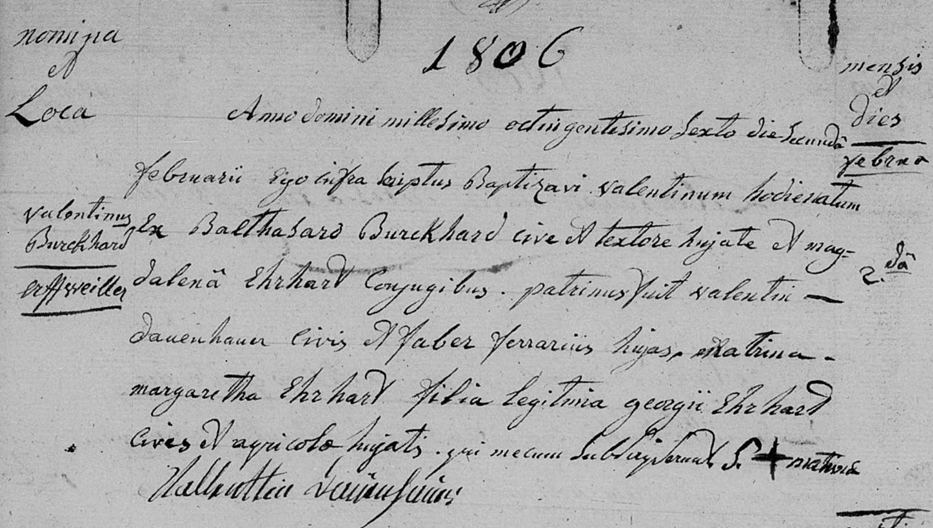 1806
nomina
et
Loca
mensis
et
dies
februa
2.dâ
valentinus
Burckhard
erffweiller
Anno domini millesimo octingentesimo sexto die secundâ
februarii Ego infra scriptus Baptizavi valentinum hodie natum
ex Balthasaro Burckhard cive et textore hujate et mag-
dalenâ Ehrhard Conjugibus. patrinus fuit valentin
dauenhauer civis et faber ferrarius hujas, Matrina
margaretha Ehrhard filia legitima georgii Ehrhard
civis et agricolæ hujatis. qui mecum subscripserunt S. + matrinæ